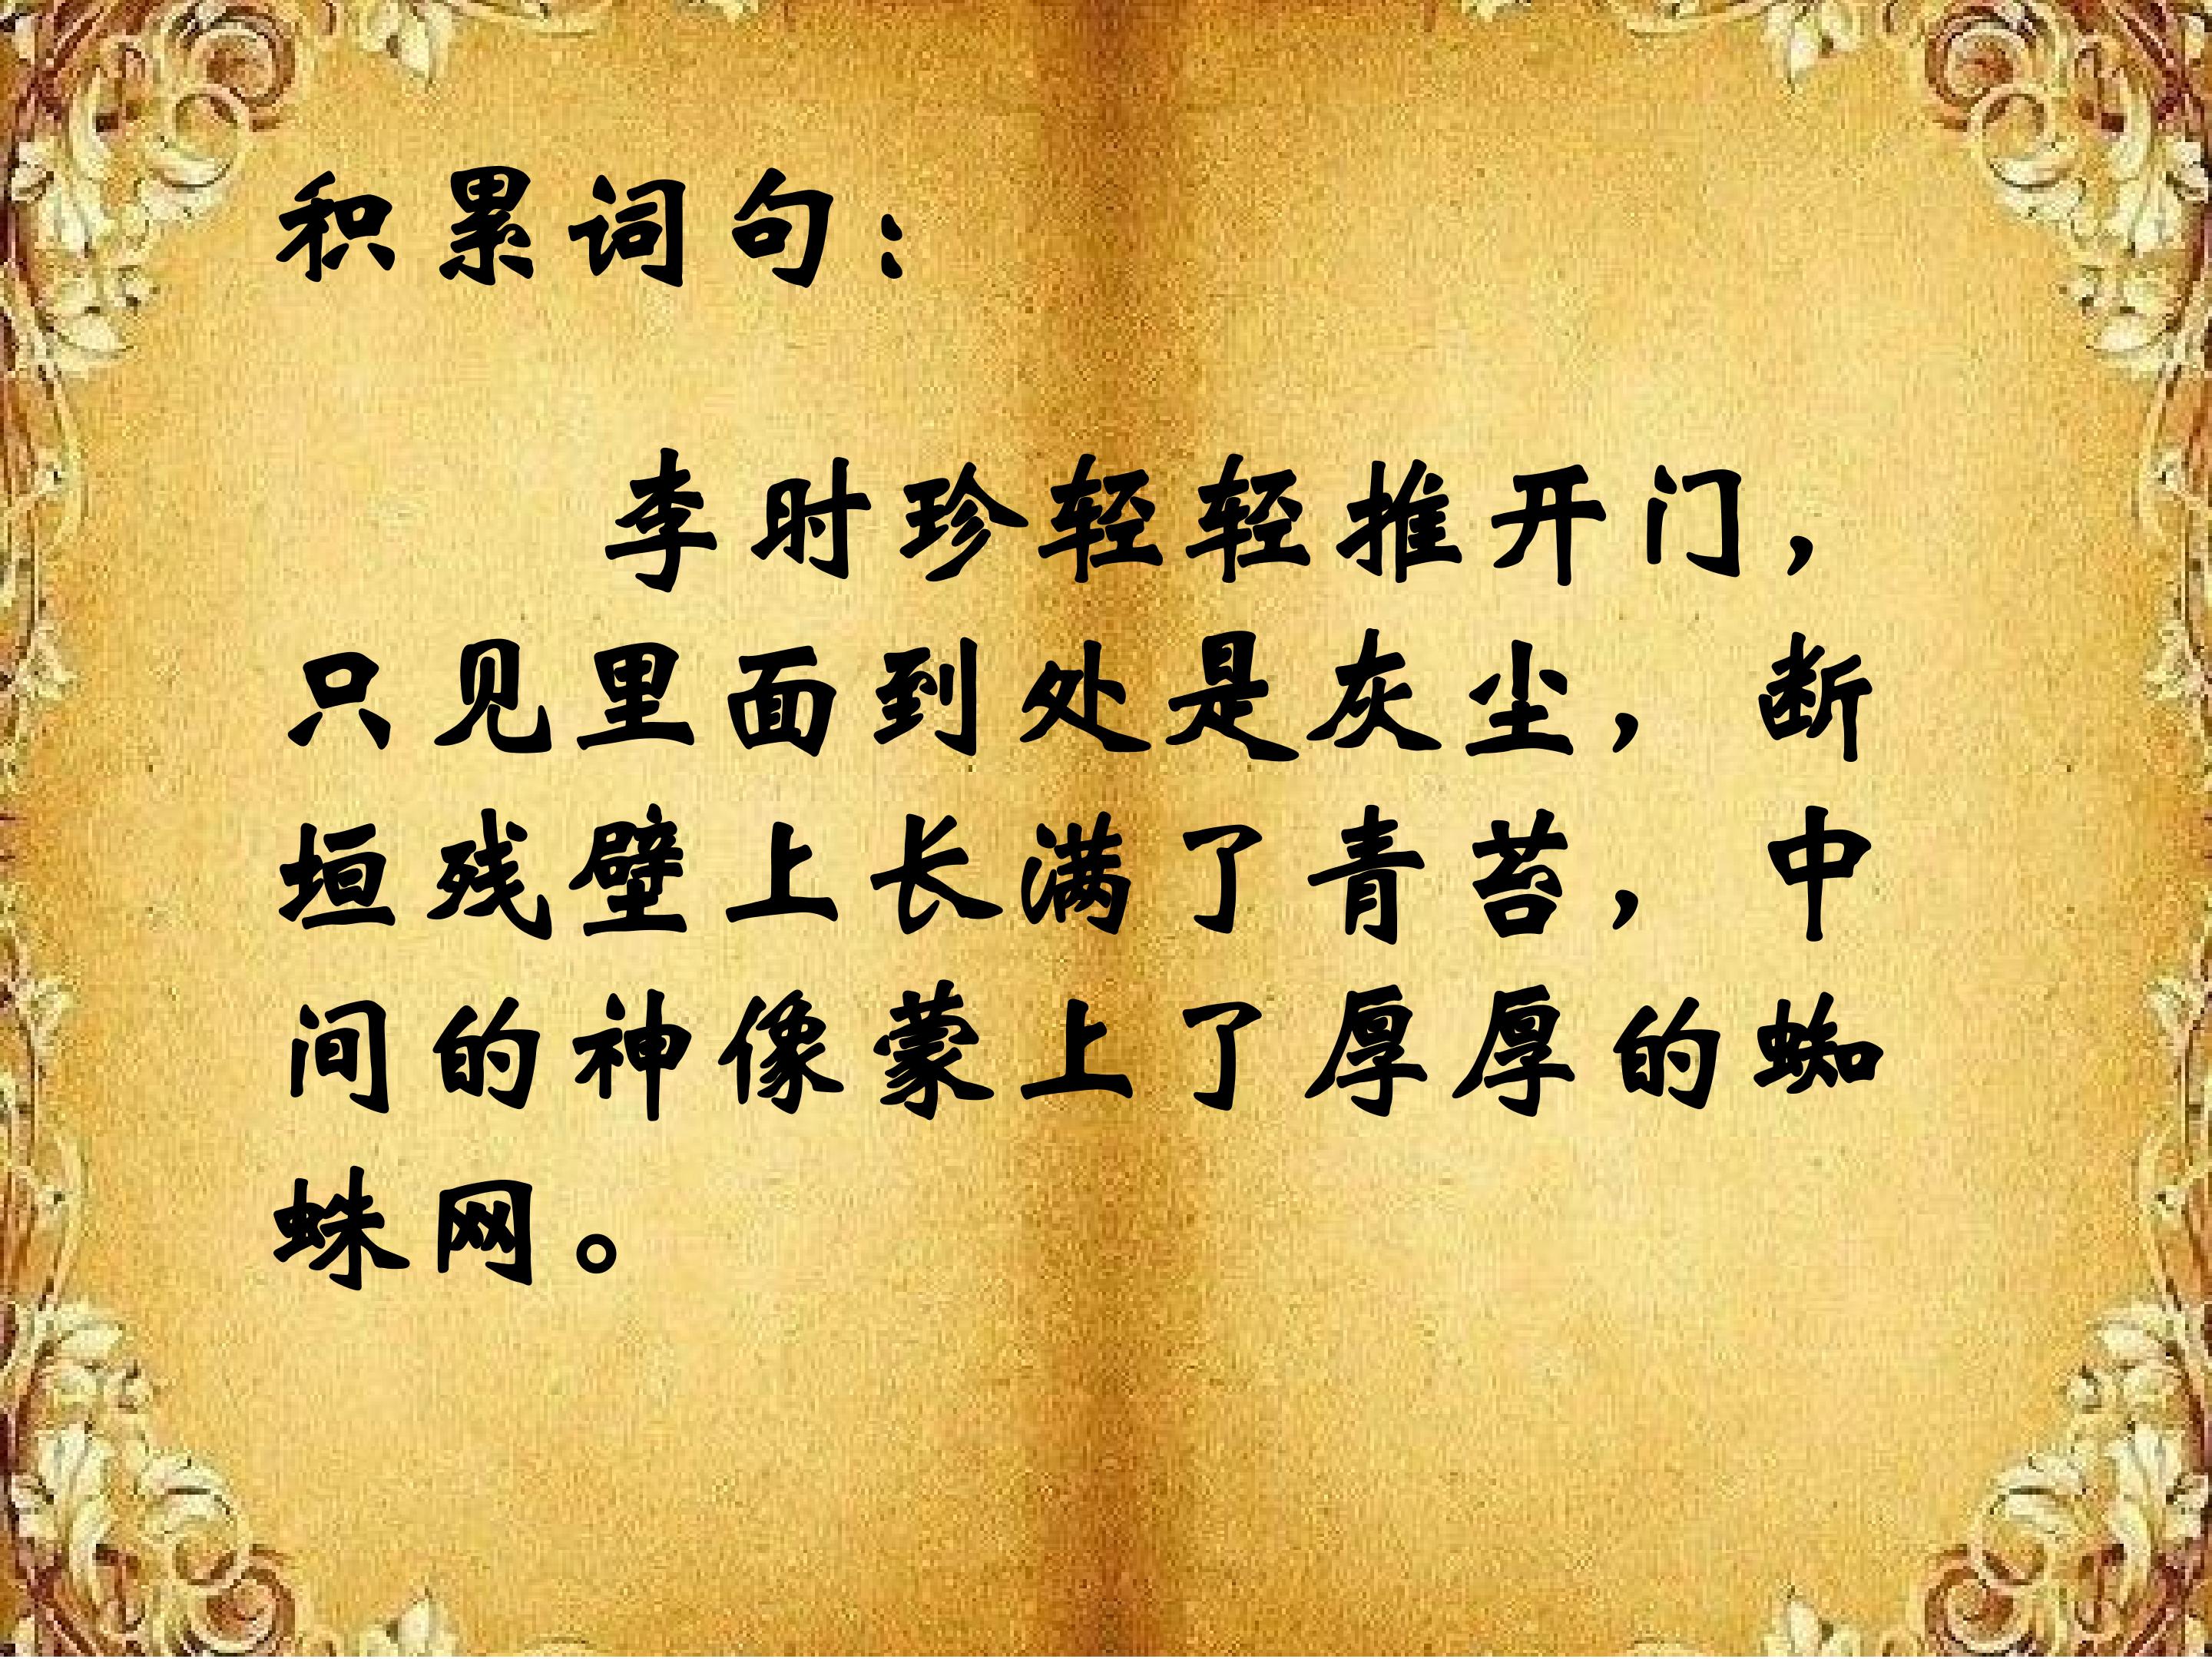 积累词句：
李时珍轻轻推开门，
只见里面到处是灰尘，断
垣残壁上长满了青苔，中
间的神像蒙上了厚厚的蜘
蛛网。